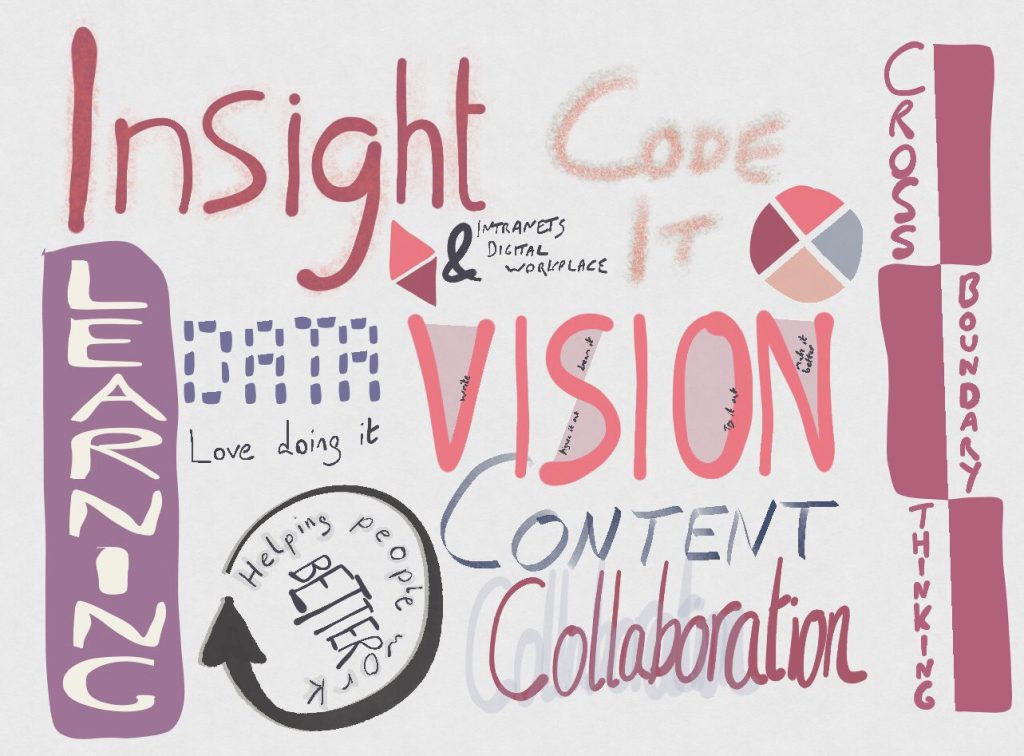 Insight
CODE
IT
&
INTRANETS
DIGITAL
WORKPLACE
CROSS
BOUNDARY
THINKING
LEARNING
DATA
Love doing it
VISION
Write
Argue it out
Draw it
Try it out
Make it
better
CONTENT
Collaboration
Helping people work
BETTER